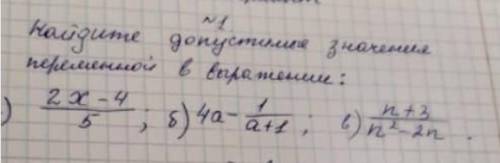 №1
Найдите допустимые значения
переменной в выражении:
) (2x-4)/5 ; б) 4a - 1/(a+1) ; в) (n+3)/(n²-2n) .